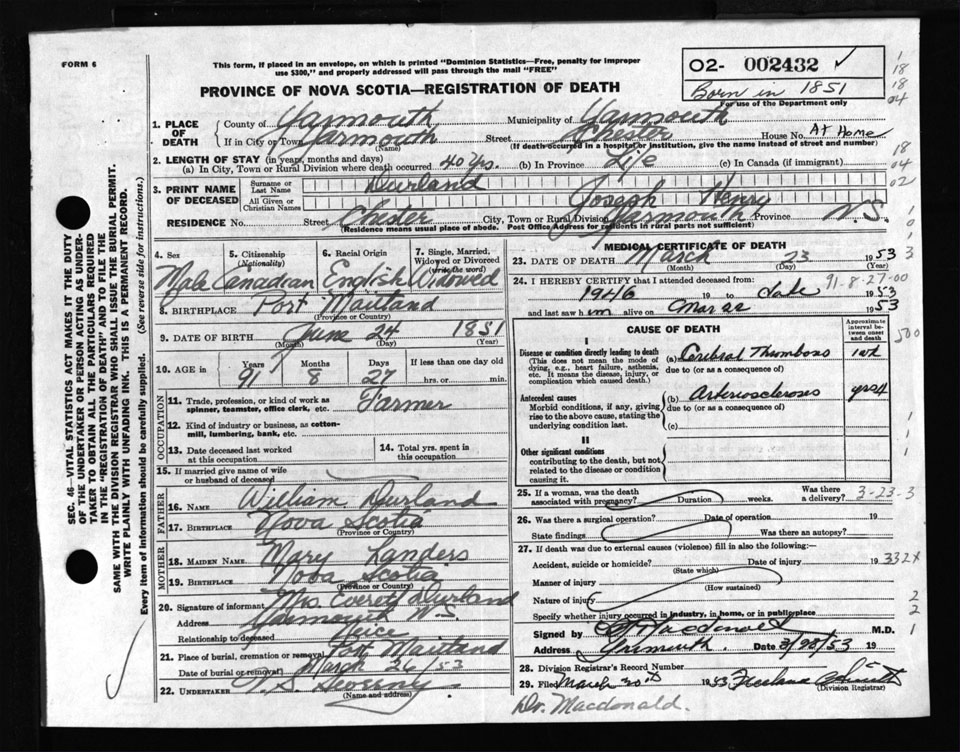 FORM 6
This form, if placed in an envelope, on which is printed "Dominion Statistics—Free, penalty for improper
use $300," and properly addressed will pass through the mail "FREE"
O2- 002432 ✓
Born in 1851
For use of the Department only
PROVINCE OF NOVA SCOTIA—REGISTRATION OF DEATH
1. PLACE OF DEATH
County of Yarmouth Municipality of Yarmouth
If in City or Town Yarmouth Street Chester House No. At Home
(Name) (If death occurred in a hospital or institution, give the name instead of street and number)
2. LENGTH OF STAY (in years, months and days)
(a) In City, Town or Rural Division where death occurred 40 yrs. (b) In Province Life (c) In Canada (if immigrant)
3. PRINT NAME OF DECEASED
Surname or Last Name Durland
All Given or Christian Names Joseph Henry
RESIDENCE No. Street Chester City, Town or Rural Division Yarmouth Province N.S.
(Residence means usual place of abode. Post Office Address for residents in rural parts not sufficient)
4. Sex 5. Citizenship (Nationality) 6. Racial Origin 7. Single, Married, Widowed or Divorced (write the word)
Male Canadian English Widowed
8. BIRTHPLACE Port Maitland
(Province or Country)
9. DATE OF BIRTH June 24 1851
(Month) (Day) (Year)
10. AGE in Years Months Days If less than one day old
91 8 27 hrs. or min.
OCCUPATION
11. Trade, profession, or kind of work as spinner, teamster, office clerk, etc. Farmer
12. Kind of industry or business, as cotton-mill, lumbering, bank, etc.
13. Date deceased last worked at this occupation
14. Total yrs. spent in this occupation
15. If married give name of wife or husband of deceased
FATHER
16. NAME William Durland
17. BIRTHPLACE Nova Scotia
(Province or Country)
MOTHER
18. MAIDEN NAME Mary Landers
19. BIRTHPLACE Nova Scotia
(Province or Country)
20. Signature of informant Mrs. Everett Durland
Address Yarmouth N.S.
Relationship to deceased
21. Place of burial, cremation or removal Port Maitland
Date of burial or removal March 26/53
22. UNDERTAKER
(Name and address)
MEDICAL CERTIFICATE OF DEATH
23. DATE OF DEATH March 23 1953
(Month) (Day) (Year)
24. I HEREBY CERTIFY that I attended deceased from: 91-8-27-00
1946 19 to date 1953
and last saw him alive on 1953
CAUSE OF DEATH
Approximate interval between onset and death
I
Disease or condition directly leading to death (a) Cerebral Thrombosis 1 wk
(This does not mean the mode of dying, e.g., heart failure, asthenia, etc. It means the disease, injury, or complication which caused death.)
due to (or as a consequence of)
Antecedent causes (b) Arteriosclerosis yrs
Morbid conditions, if any, giving rise to the above cause, stating the underlying condition last.
due to (or as a consequence of)
(c)
II
Other significant conditions
contributing to the death, but not related to the disease or condition causing it.
25. If a woman, was the death associated with pregnancy? Duration weeks. Was there a delivery? 3-23-3
26. Was there a surgical operation? Date of operation 19
State findings Was there an autopsy?
27. If death was due to external causes (violence) fill in also the following:—
Accident, suicide or homicide? Date of injury 19 332X
(State which)
Manner of injury
(How sustained)
Nature of injury
Specify whether injury occurred in industry, in home, or in public place
Signed by M.D.
Address Yarmouth. Date 3/28/53 19
28. Division Registrar's Record Number
29. Filed March 30th 1953
(Division Registrar)
Dr. Macdonald.
SEC. 46—VITAL STATISTICS ACT MAKES IT THE DUTY
OF THE UNDERTAKER OR PERSON ACTING AS UNDER-
TAKER TO OBTAIN ALL THE PARTICULARS REQUIRED
IN THE "REGISTRATION OF DEATH" AND TO FILE THE
SAME WITH THE DIVISION REGISTRAR WHO SHALL ISSUE THE BURIAL PERMIT.
WRITE PLAINLY WITH UNFADING INK. THIS IS A PERMANENT RECORD.
Every item of information should be carefully supplied. (See reverse side for instructions.)
1
18
18
04
18
04
02